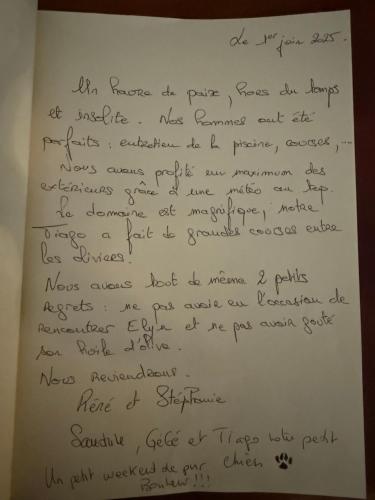 Le 1er juin 2025.
Un havre de paix, hors du temps
et insolite. Nos hommes ont été
parfaits : entretien de la piscine, courses, ...
Nous avons profité au maximum des
extérieurs grâce à une météo au top.
Le domaine est magnifique, notre
Tiago a fait de grandes courses entre
les oliviers.
Nous avons tout de même 2 petits
regrets : ne pas avoir eu l'occasion de
rencontrer et ne pas avoir gouté
son huile d'olive.
Nous reviendrons.
Réné et Stéphanie
Sandrine, Gégé et Tiago notre petit
chien
Un petit weekend de pur
Bonheur !!!